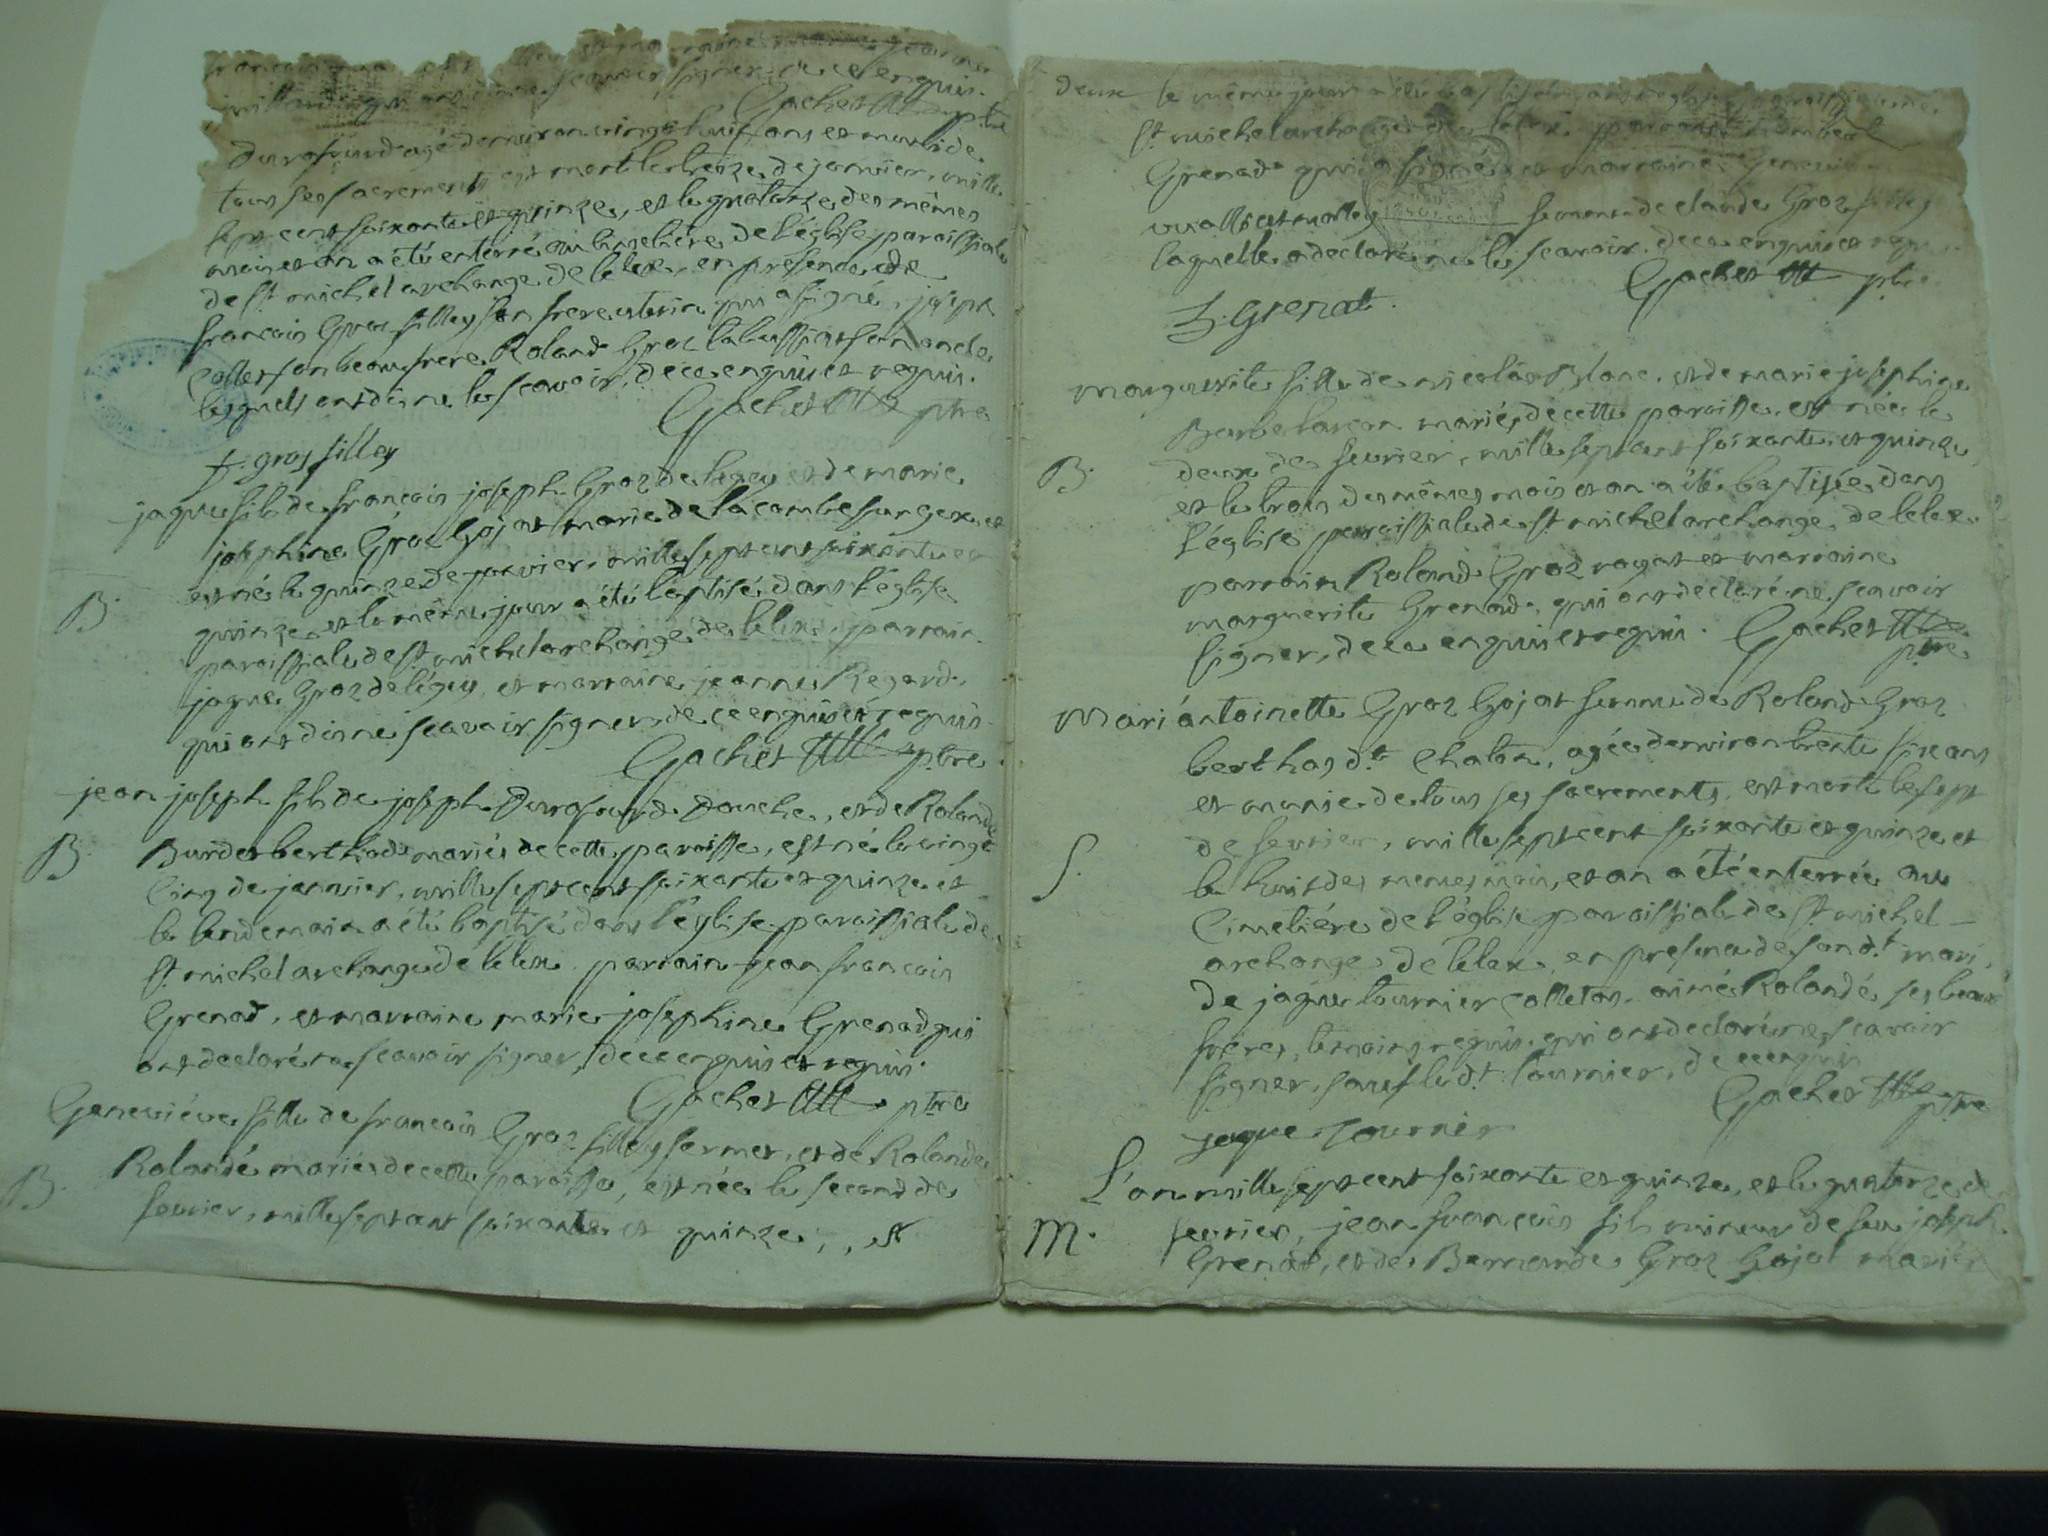 scavoir signer, de ce enquis.
Gachet ptre
Durafourd agé denviron vingt huit ans et muni de
tous ses sacrements est mort le treize de janvier, mille
sept cent soixante et quinze, et le quatorze des mêmes
mois et an a été enterré au cimetière de l'église paroissiale
de st michel archange de lelex, en presence de
françois Groz filley son frere uterin qui a signé, joseph
Collet son beau frere Roland Groz labussiat son oncle
lesquels ont dit ne le scavoir, de ce enquis et requis.
Gachet ptre
f. gros filley
jaque fils de françois joseph Groz de legey et de marie
josephine Groz Gojat marié de lacombe sur gex, et
est né le quinze de janvier, mille sept cent soixante et
B.
quinze, et le même jour a été baptisé dans l'église
paroissiale de st michel archange de lelex, parrain
jaque Groz de légey, et marraine jeanne Regard,
qui ont dit ne scavoir signer de ce enquis et requis.
Gachet ptre
jean joseph fils de joseph Durafourd Douche, et de Rolande
B.
Burdet berthod mariés de cette paroisse, est né le vingt
Cinq de janvier, mille sept cent soixante et quinze et
le lendemain a été baptisé dans l'église paroissiale de
st michel archange de lelex parrain jean françois
Grenad, et marraine marie josephine Grenad qui
ont declaré ne scavoir signer, de ce enquis et requis.
Gachet ptre
Geneviéve fille de françois Groz filley fermet, et de Rolande
B.
Rolandé mariés de cette paroisse, est née le second de
fevrier, mille sept cent soixante et quinze, et
deux le même jour a été
st michel archange de lelex parrain
Grenad qui a signé et marraine Genevie
femme de claude Groz filley
laquelle a declaré ne le scavoir. de ce enquis et requis
Gachet ptre
Grenat.
marguerite fille de nicolas Blanc, et de marie josephine
mariés de cette paroisse, est née le
B.
deux de fevrier, mille sept cent soixante et quinze
et le trois des mêmes mois et an a été baptisée dans
l'église paroissiale de st michel archange de lelex
parrain Roland Groz rogat et marraine
marguerite Grenad, qui ont declaré ne scavoir
signer, de ce enquis et requis. Gachet
ptre
Mari antoinette Groz Gojat femme de Roland Groz
berthas dt Chabon, agée denviron trente six ans
et munie de tous ses sacrements, est morte le sept
de fevrier, mille sept cent soixante et quinze et
S.
le huit des memes mois, et an a été enterrée au
Cimetiére de l'église paroissiale de st michel
archange de lelex, en presence de son dt mari,
de jaque tournier Colleton, aimé Rolandé ses beaux
fréres, temoins requis, qui ont declaré ne scavoir
signer, sauf le dt tournier, de ce enquis
Gachet ptre
jaque Tournier
L'an mille sept cent soixante et quinze, et le quatorze de
M.
fevrier, jean françois fils mineur de feu joseph
Grenad, et de Bernarde Groz Gojat mariés